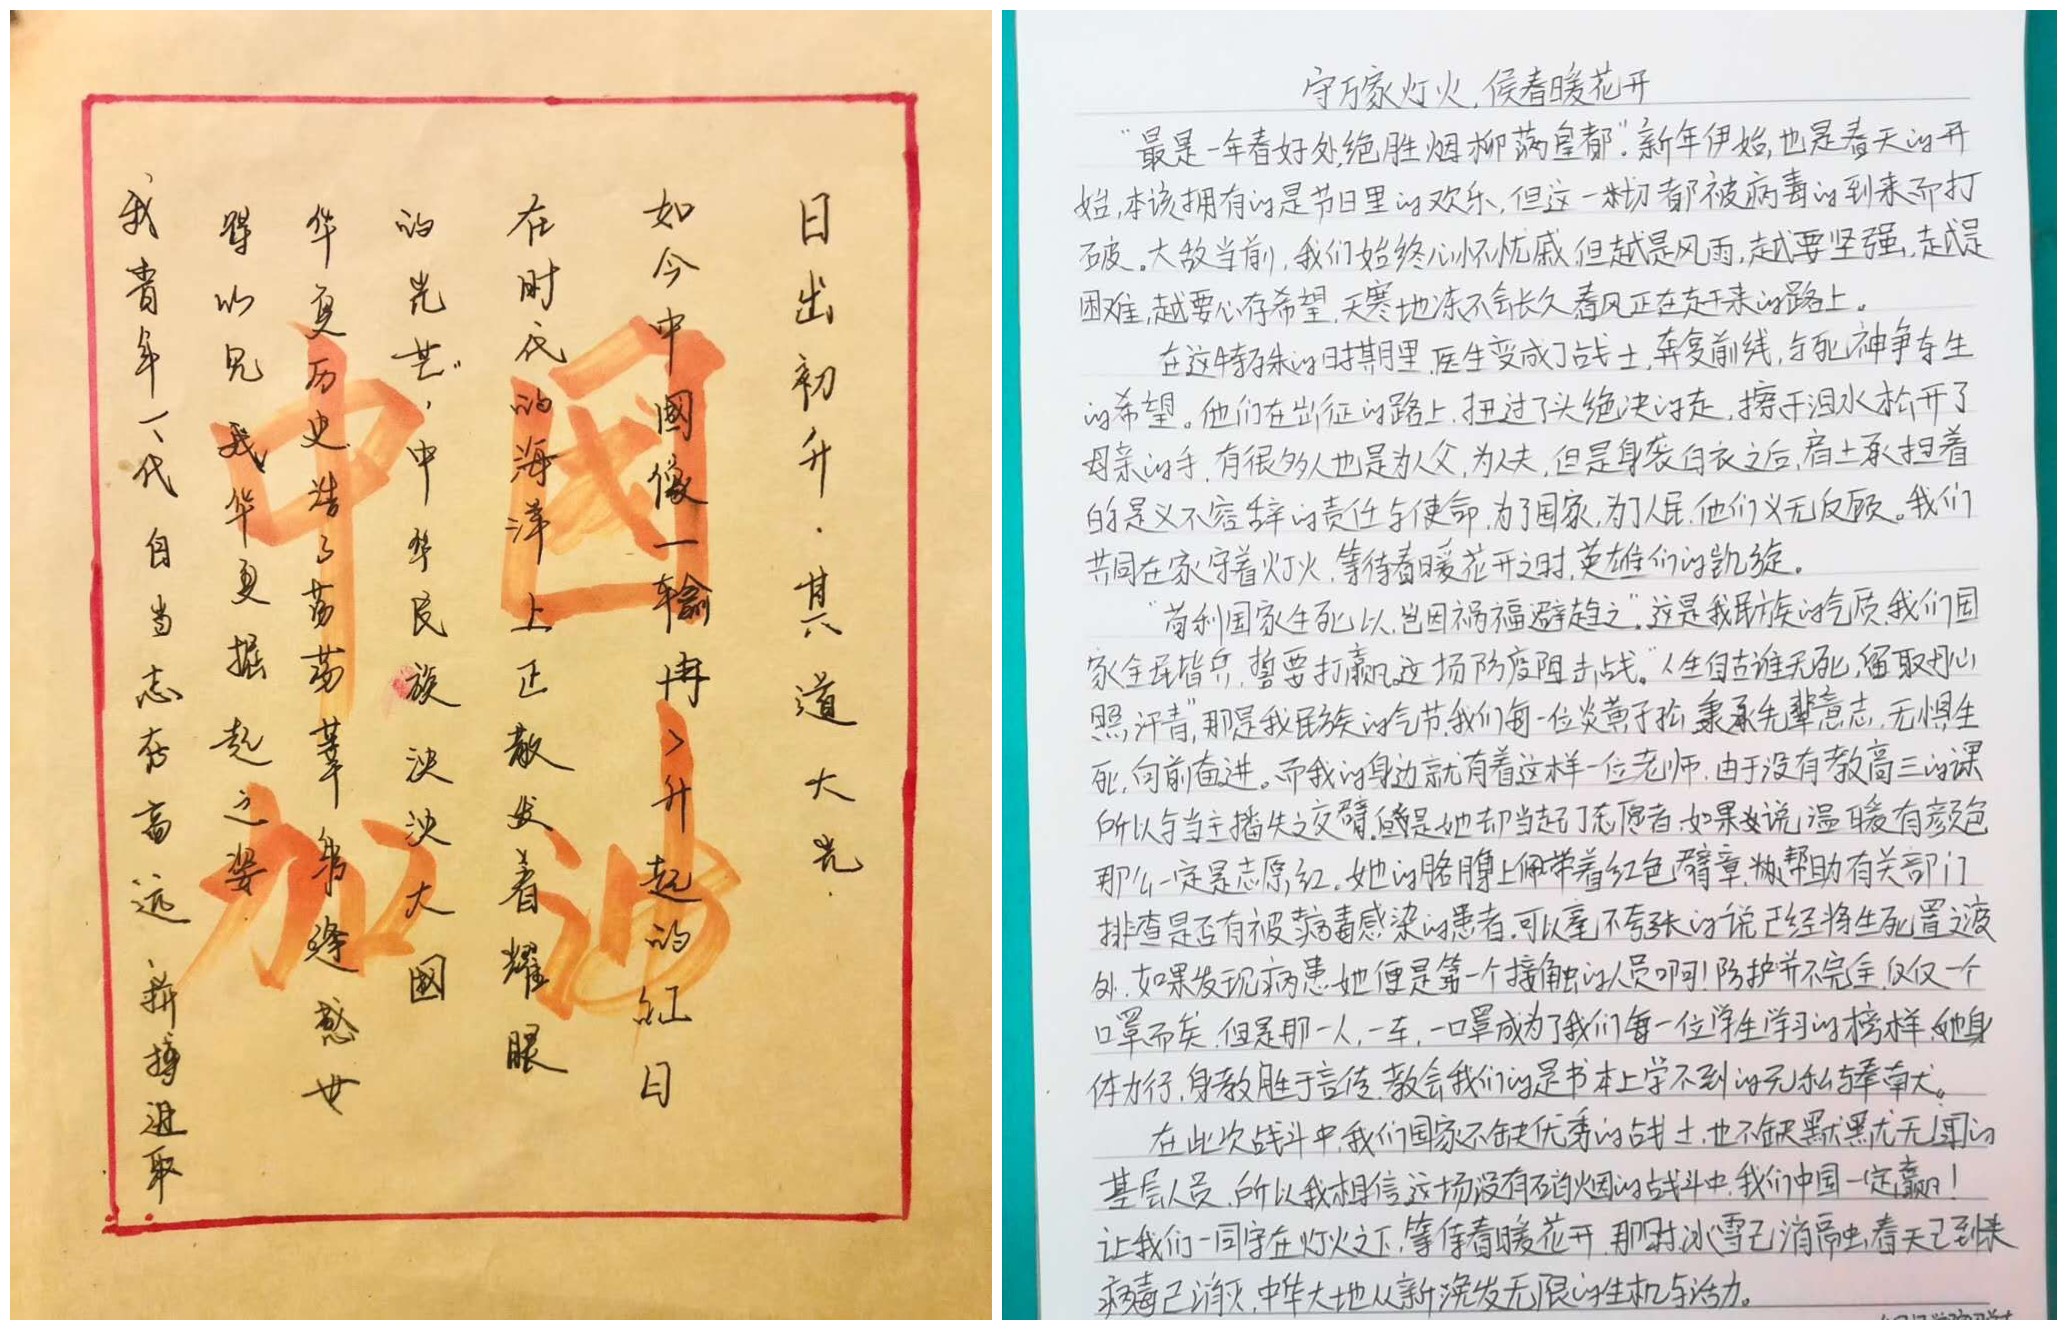 日出初升．其道大光．
如今中國像一輪冉冉升起的红日
在时代的海洋上正散发着耀眼
的光芒，中华民族泱泱大國
华夏历史浩浩荡荡莘莘
得以见我华夏掘起之姿
我青年一代自当志存高远拼搏进取
中國
加油
守万家灯火，侯春暖花开
“最是一年春好处，绝胜烟柳满皇都”。新年伊始，也是春天的开
始，本该拥有的是节日里的欢乐，但这一切都被病毒的到来而打
破。大敌当前，我们始终心怀忧戚，但越是风雨，越要坚强，越是
困难，越要心存希望，天寒地冻不会长久，春风正在赶来的路上。
在这特殊的时期里，医生变成了战士，奔复前线，与死神争夺生
的希望。他们在出征的路上，扭过了头绝决的走，擦干泪水松开了
母亲的手，有很多人也是为人父，为人夫，但是身袭白衣之后，肩上承担着
的是义不容辞的责任与使命，为了国家，为了人民，他们义无反顾。我们
共同在家守着灯火，等待春暖花开之时，英雄们的凯旋。
“苟利国家生死以，岂因祸福避趋之”。这是我民族的气质，我们国
家全民皆兵，誓要打赢这场防疫阻击战。“人生自古谁无死，留取丹心
照汗青”，那是我民族的气节，我们每一位炎黄子孙，秉承先辈意志，无惧生
死，向前奋进。而我的身边就有着这样一位老师，由于没有教高三的课
所以与当主播失之交臂。但是她却当起了志愿者，如果说温暖有颜色
那么一定是志愿红。她的胳膊上佩带着红色臂章，帮助有关部门
排查是否有被病毒感染的患者，可以毫不夸张的说已经将生死置之度
外，如果发现病患，她便是第一个接触的人员啊！防护并不完全，仅仅一个
口罩而矣，但是那一人，一车，一口罩成为了我们每一位学生学习的榜样，她身
体力行，身教胜于言传，教会我们的是书本上学不到的无私与奉献。
在此次战斗中，我们国家不缺优秀的战士，也不缺默默无闻的
基层人员，所以我相信这场没有硝烟的战斗中，我们中国一定赢！
让我们一同守在灯火之下，等待春暖花开，那时，冰雪已消融，春天已到来
病毒已消灭，中华大地从新焕发无限的生机与活力。